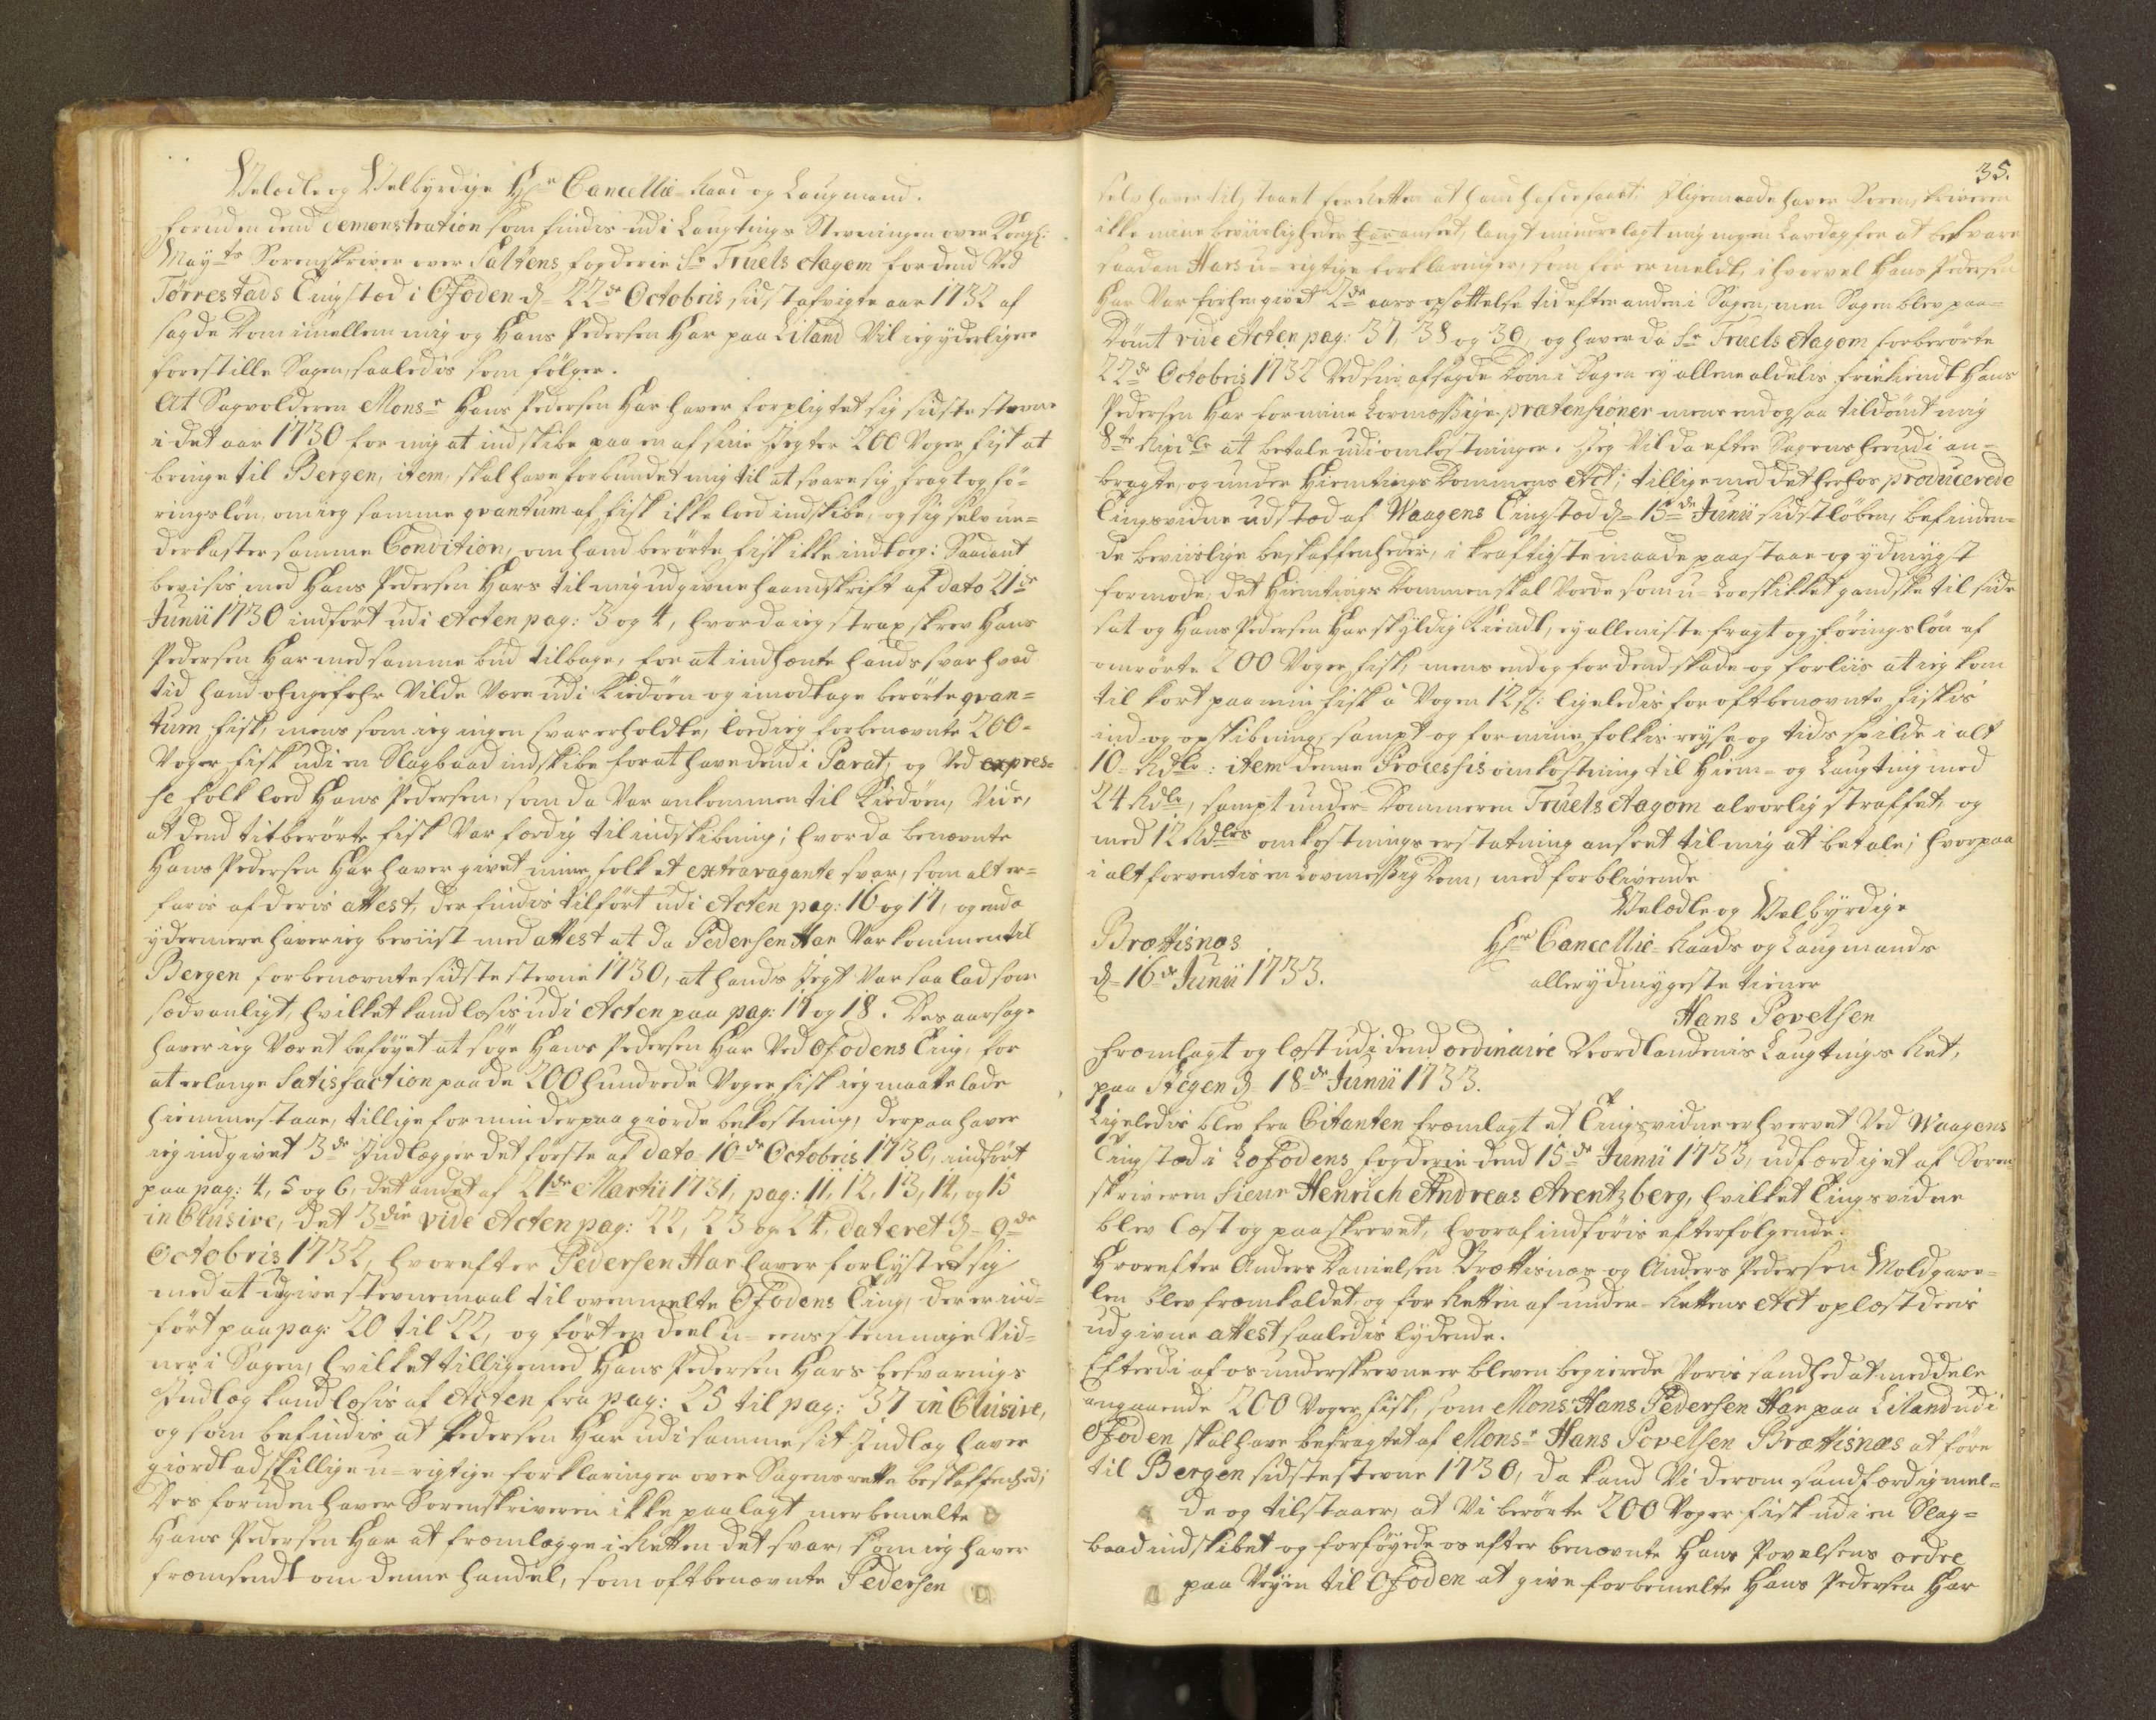 Velædle og Velbÿrdige Hr Cancellie-Raad og Laugmand.
foruden dend demonstration som findis udi Laugtings Stevningen over Kongl:
Mayts Sorenskriver over Saltens fogderie Sr Truels Aagom fordend Ved
Torrestads Tingstæd i Ofoden d= 22de Octobris sidst afvigte aar 1732 af
sagde Dom imellem mig og Hans Pedersen Har paa Liland Vil ieg yderligere
forestille Sagen, saaledis som følger.
At Sagvolderen Monsr Hans Pedersen Har haver forpligtet sig sidste stevne
i det aar 1730 for mig at indskibe paa en af sine Jegter 200 Voger fisk at
bringe til Bergen, item, skal have forbundet mig til at svare sig fragt og fø-
ringsløn, om ieg samme qvantum af fisk ikke lod indskibe, og sig selv un-
derkaster samme Condition, om hand berørte fisk ikke indtog: Saadant
bevisis med Hans Pedersen Hars til mig udgivne haandskrift af dato 21de
Junii 1730 indført udi Acten pag: 3 og 4, hvor da ieg strax skrev Hans
Pedersen Har med samme bud tilbage, for at indhente hands svar hvad
tid hand ohngefehr Vilde Være udi Kiedøen og imodtage berørte qvan=
tum fisk, mens som ieg ingen svar erholdte, lod ieg forbenævnte 200-
Voger fisk udi en Slagbaad indskibe for at have dend i Parat, og Ved expres=
se folk lod Hans Pedersen, som da Var ankommen til Kiedøen, Vide,
at dend titberørte fisk Var færdig til indskibning; hvor da benævnte
Hans Pedersen Har haver givet mine folk et extravagante svar, som alt er=
faris af deris attest, der findis tilført udi Acten pag: 16 og 17, og enda
ydermere haver ieg beviist med attest at da Pedersen Har Var kommen til
Bergen forbenævnte sidste stevne 1730, at hands Jegt Var saa lad som
sædvanligt, hvilket kand læsis udi Acten paa pag: 17 og 18. Des aarsage
haver ieg Været beføyet at søge Hans Pedersen Har Ved Ofodens Ting, for
at erlange Satisfaction paa de 200 hundrede Voger fisk ieg maatte lade
hiemme staae, tillige for min derpaa giorde bekostning, derpaa haver
ieg indgivet 3de Indlægger det første af dato 10de Octobris 1730, indført
paa pag: 4, 5 og 6, det andet af 21de Martii 1731, pag: 11, 12, 13, 14, og 15
inclusive, det 3die vide Acten pag: 22, 23 og 24, dateret d= 9de
Octobris 1732, hvorefter Pedersen Har haver forlystet sig
med at udgive stevnemaal til ovenmelte Ofodens Ting, der er ind-
ført paa pag: 20 til 22, og ført en deel u-eenstemmige Vid=
ner i Sagen, hvilket tilligemed Hans Pedersen Hars besvarings
Indlæg kand læsis af Acten fra pag: 25 til pag: 37 inclusive,
og som befindis at Pedersen Har udi samme sit Indlæg haver
giordt adskillige u-rigtige forklaringer over Sagens rette beskaffenhed;
Des foruden haver Sorenskriveren ikke paalagt merbemelte
Hans Pedersen Har at fremlægge i Retten det svar, som ieg haver
fremsendt om denne handel, som oftbenævnte Pedersen
35.
selv haver tilstaaet for Retten at hand hafde faaet. Iligemaade haver Sorenskriveren
ikke mine beviisligheder anseet, langt mindre lagt mig nogen Laudag for at besvare
saadan Hars u-rigtige forklaringer, som før er meldt, ihvorvel Hans Pedersen
Har Var forhen givet 2de aars opsættelse tid efter anden i Sagen, men Sagen blev paa=
Dømt vide Acten pag: 37, 38 og 39, og haver da Sr Truels Aagom forberørte
22de Octobris 1732 Ved sin afsagde Dom i Sagen ey allene aldelis friekiendt Hans
Pedersen Har for mine Lovmessige prætensioner mens end ogsaa tildømt mig
8te Rixdlr at betale udi omkostninger. Jeg Vil da efter Sagens herudi an-
bragte, og under Hiemtings Dommens Act, tilligemed det herhos producerede
Tingsvidne udsted af Waagens Tingsted d= 15de Junii sidstløben, befinden-
de beviislige beskaffenheder, i kraftigste maade paastaae og ydmygst
formode, det Hiemtings Dommen skal Vorde som u-Lovskikket gandske til side
sat og Hans Pedersen Har skyldig kiendt, ey alleniste fragt og føringsløn af
omrørte 200 Voger fisk, mens endog for dend skade og forliis at ieg kom
til kort paa min fisk à Vogen 12 s: ligeledis for oftbenævnte fiskis
ind- og opskibning, sampt og for mine folkis reyse og tids spilde i alt
10 Rdlr: item denne Processis omkostning til Hiem- og Laugting med
24 Rdlr, sampt under-Dommeren Truels Aagom alvorlig straffet, og
med 12 Rdlrs omkostnings erstatning anseet til mig at betale; hvorpaa
i alt forventis en Lovmessig Dom, med forblivende
Velædle og Velbyrdige
Brættisnæs
Hr Cancellie-Raads og Laugmands
d= 16de Junii 1733.
allerydmygeste tiener
Hans Povelsen
fremlagt og læst udi dend ordinaire Nordlandenis Laugtings Ret,
paa Stegen d 18de Junii 1733.
Ligeledis blev fra Citanten fremlagt et Tingsvidne erhvervet Ved Waagens
Tingsted i Lofodens fogderie dend 15de Junii 1733, udfærdiget af Soren
skriveren Sieur Henrich Andreas Arentzberg, hvilket Tingsvidne
blev læst og paaskrevet, hvoraf indføris efterfølgende.
Hvorefter Anders Danielsen Brættisnæs og Anders Pedersen Moldgave-
len blev fremkaldet, og for Retten af under-Rettens Act oplæst deris
udgivne attest saaledis lydende.
Efterdi af os underskrevne er bleven begierede Voris sandhed at meddele
angaaende 200 Voger fisk, som Mons: Hans Pedersen Har paa Liland udi
Ofoden skal have befragtet af Monsr Hans Povelsen Brættisnæs at føre
til Bergen sidste stevne 1730, da kand Vi derom sandfærdig mel-
de og tilstaaer, at Vi berørte 200 Voger fisk udi en Slag-
baad indskibet og forføyede os efter benævnte Hans Povelsens ordre
paa Veyen til Ofoden at give forbemelte Hans Pedersen Har